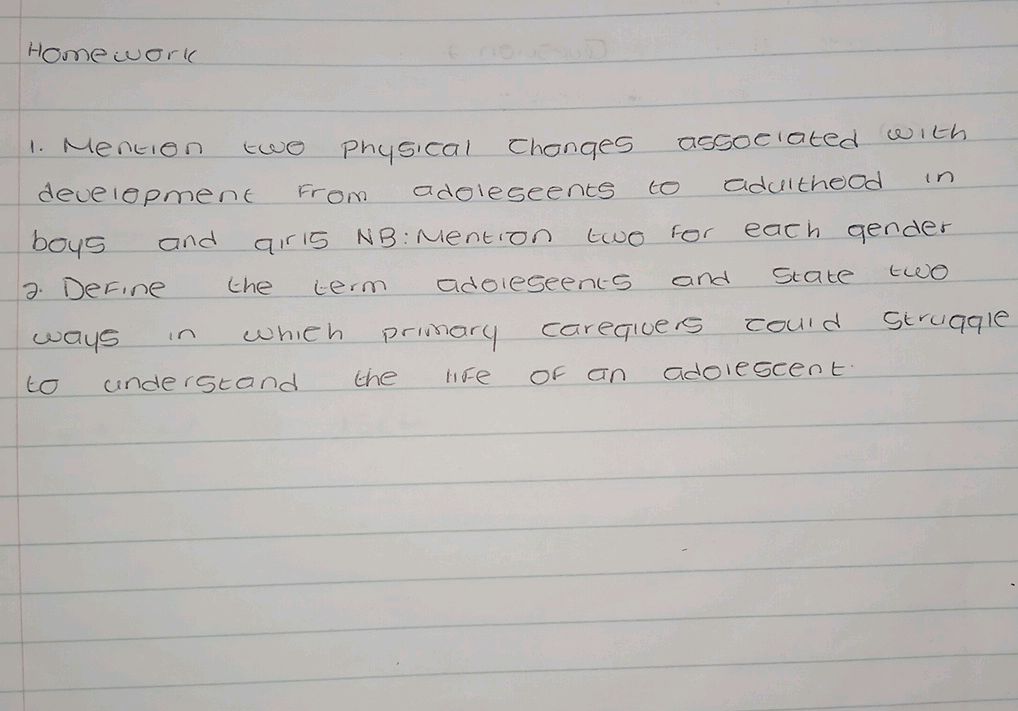 Homework
1. Mention two physical changes associated with
development from adoleseents to adulthood in
boys and girls NB: Mention two for each gender
2. Define the term adoleseents and state two
ways in which primary caregivers could struggle
to understand the life of an adolescent.